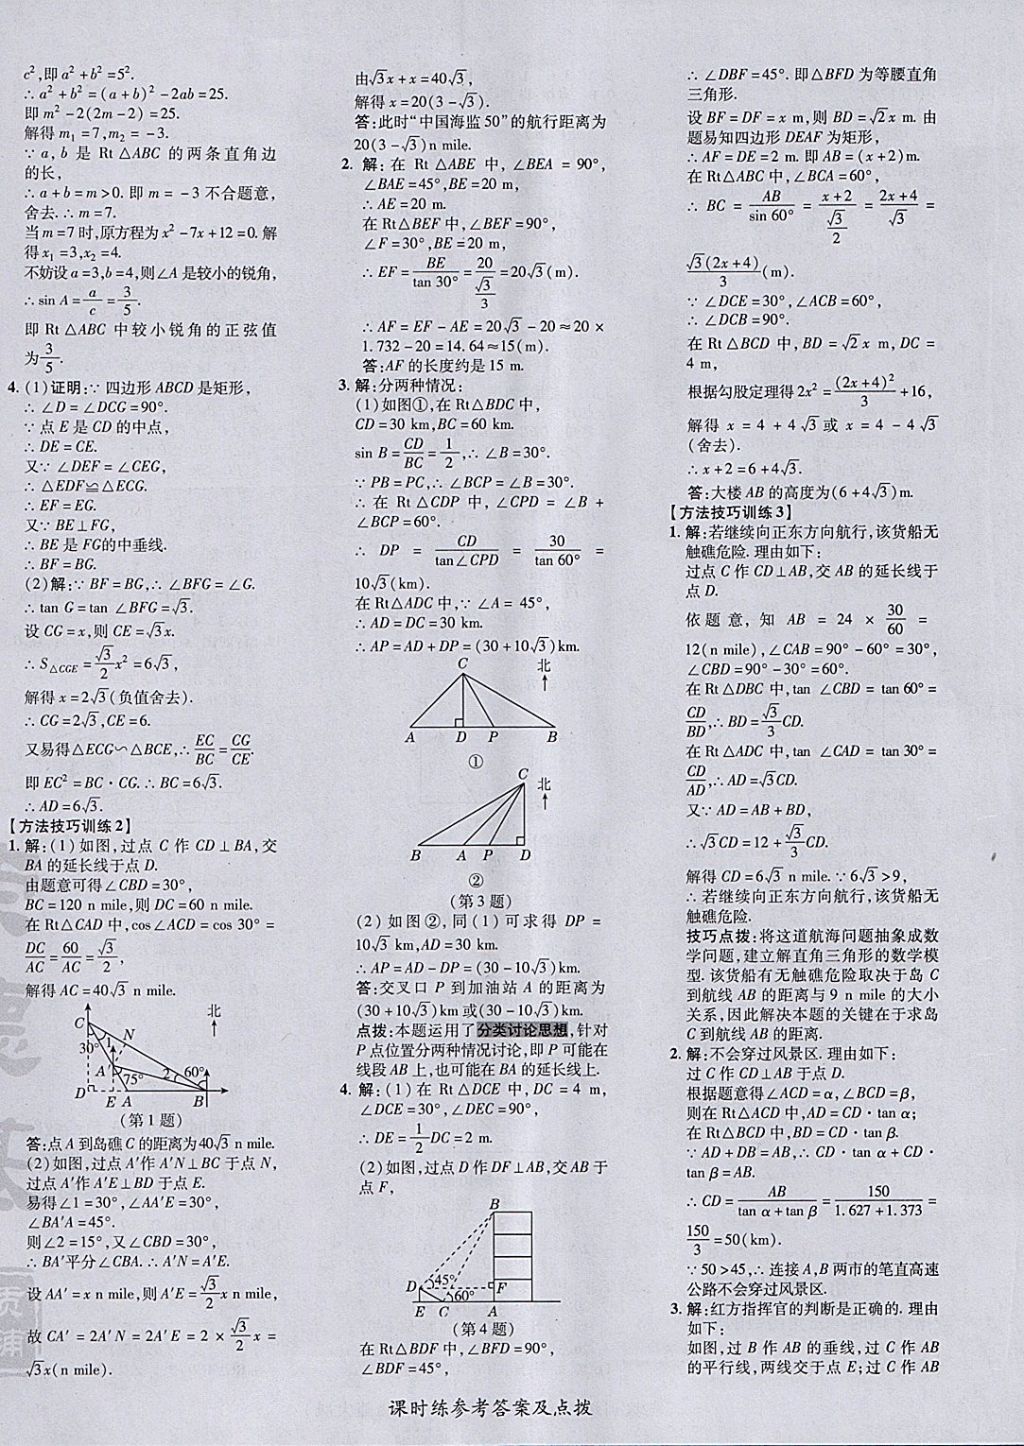 c²,即a²+b²=5².
∴a²+b²=(a+b)²-2ab=25.
即m²-2(2m-2)=25.
解得m₁=7,m₂=-3.
∵a,b是Rt△ABC的两条直角边
的长,
∴a+b=m>0.即m=-3不合题意,
舍去.∴m=7.
当m=7时,原方程为x²-7x+12=0.解
得x₁=3,x₂=4.
不妨设a=3,b=4,则∠A是较小的锐角,
∴sin A=a/c=3/5.
即Rt△ABC中较小锐角的正弦值
为3/5.
4.(1)证明:∵四边形ABCD是矩形,
∴∠D=∠DCG=90°.
∵点E是CD的中点,
∴DE=CE.
又∵∠DEF=∠CEG,
∴△EDF≌△ECG.
∴EF=EG.
又∵BE⊥FG,
∴BE是FG的中垂线.
∴BF=BG.
(2)解:∵BF=BG,∴∠BFG=∠G.
∴tan G=tan∠BFG=√3.
设CG=x,则CE=√3x.
∴S△CGE=√3/2x²=6√3,
解得x=2√3(负值舍去).
∴CG=2√3,CE=6.
又易得△ECG∽△BCE,∴EC/BC=CG/CE.
即EC²=BC·CG.∴BC=6√3.
∴AD=6√3.
【方法技巧训练2】
1.解:(1)如图,过点C作CD⊥BA,交
BA的延长线于点D.
由题意可得∠CBD=30°,
BC=120 n mile,则DC=60 n mile.
在Rt△CAD中,cos∠ACD=cos 30°=
DC/AC=60/AC=√3/2,
解得AC=40√3 n mile.
北
C
N
30°
1
A′
75°
2
60°
D
E
A
B
(第1题)
答:点A到岛礁C的距离为40√3 n mile.
(2)如图,过点A′作A′N⊥BC于点N,
过点A′作A′E⊥BD于点E.
易得∠1=30°,∠AA′E=30°,
∠BA′A=45°.
则∠2=15°,又∠CBD=30°,
∴BA′平分∠CBA.∴A′N=A′E.
设AA′=x n mile,则A′E=√3/2x n mile,
故CA′=2A′N=2A′E=2×√3/2x=
√3x(n mile).
由√3x+x=40√3,
解得x=20(3-√3).
答:此时“中国海监50”的航行距离为
20(3-√3)n mile.
2.解:在Rt△ABE中,∠BEA=90°,
∠BAE=45°,BE=20 m,
∴AE=20 m.
在Rt△BEF中,∠BEF=90°,
∠F=30°,BE=20 m,
∴EF=BE/tan 30°=20/(√3/3)=20√3(m).
∴AF=EF-AE=20√3-20≈20×
1.732-20=14.64≈15(m).
答:AF的长度约是15 m.
3.解:分两种情况:
(1)如图①,在Rt△BDC中,
CD=30 km,BC=60 km.
sin B=CD/BC=1/2,∴∠B=30°.
∵PB=PC,∴∠BCP=∠B=30°.
∴在Rt△CDP中,∠CPD=∠B+
∠BCP=60°.
∴DP=CD/tan∠CPD=30/tan 60°=
10√3(km).
在Rt△ADC中,∵∠A=45°,
∴AD=DC=30 km.
∴AP=AD+DP=(30+10√3)km.
C
北
A D P B
①
C
北
B A P D
②
(第3题)
(2)如图②,同(1)可求得DP=
10√3 km,AD=30 km.
∴AP=AD-DP=(30-10√3)km.
答:交叉口P到加油站A的距离为
(30+10√3)km或(30-10√3)km.
点拨:本题运用了分类讨论思想,针对
P点位置分两种情况讨论,即P可能在
线段AB上,也可能在BA的延长线上.
4.解:(1)在Rt△DCE中,DC=4 m,
∠DCE=30°,∠DEC=90°,
∴DE=1/2DC=2 m.
(2)如图,过点D作DF⊥AB,交AB于
点F,
B
D
45°
F
60°
E C A
(第4题)
在Rt△BDF中,∠BFD=90°,
∠BDF=45°,
∴∠DBF=45°.即△BFD为等腰直角
三角形.
设BF=DF=x m,则BD=√2x m.由
题易知四边形DEAF为矩形,
∴AF=DE=2 m.即AB=(x+2)m.
在Rt△ABC中,∠BCA=60°,
∴BC=AB/sin 60°=(x+2)/(√3/2)=(2x+4)/√3=
√3(2x+4)/3(m).
∵∠DCE=30°,∠ACB=60°,
∴∠DCB=90°.
在Rt△BCD中,BD=√2x m,DC=
4 m,
根据勾股定理得2x²=(2x+4)²/3+16,
解得x=4+4√3或x=4-4√3
(舍去).
∴x+2=6+4√3.
答:大楼AB的高度为(6+4√3)m.
【方法技巧训练3】
1.解:若继续向正东方向航行,该货船无
触礁危险.理由如下:
过点C作CD⊥AB,交AB的延长线于
点D.
依题意,知AB=24×30/60=
12(n mile),∠CAB=90°-60°=30°,
∠CBD=90°-30°=60°.
在Rt△DBC中,tan∠CBD=tan 60°=
CD/BD,∴BD=√3/3CD.
在Rt△ADC中,tan∠CAD=tan 30°=
CD/AD,∴AD=√3CD.
又∵AD=AB+BD,
∴√3CD=12+√3/3CD.
解得CD=6√3 n mile.∵6√3>9,
∴若继续向正东方向航行,该货船无
触礁危险.
技巧点拨:将这道航海问题抽象成数
学问题,建立解直角三角形的数学模
型.该货船有无触礁危险取决于岛C
到航线AB的距离与9 n mile的大小
关系,因此解决本题的关键在于求岛
C到航线AB的距离.
2.解:不会穿过风景区.理由如下:
过C作CD⊥AB于点D.
根据题意得∠ACD=α,∠BCD=β,
则在Rt△ACD中,AD=CD·tan α;
在Rt△BCD中,BD=CD·tan β.
∵AD+DB=AB,∴CD·tan α+CD·
tan β=AB.
∴CD=AB/(tan α+tan β)=150/(1.627+1.373)=
150/3=50(km).
∵50>45,∴连接A,B两市的笔直高速
公路不会穿过风景区.
3.解:红方指挥官的判断是正确的.理由
如下:
如图,过B作AB的垂线,过C作AB
的平行线,两线交于点E;过C作AB
课时练参考答案及点拨